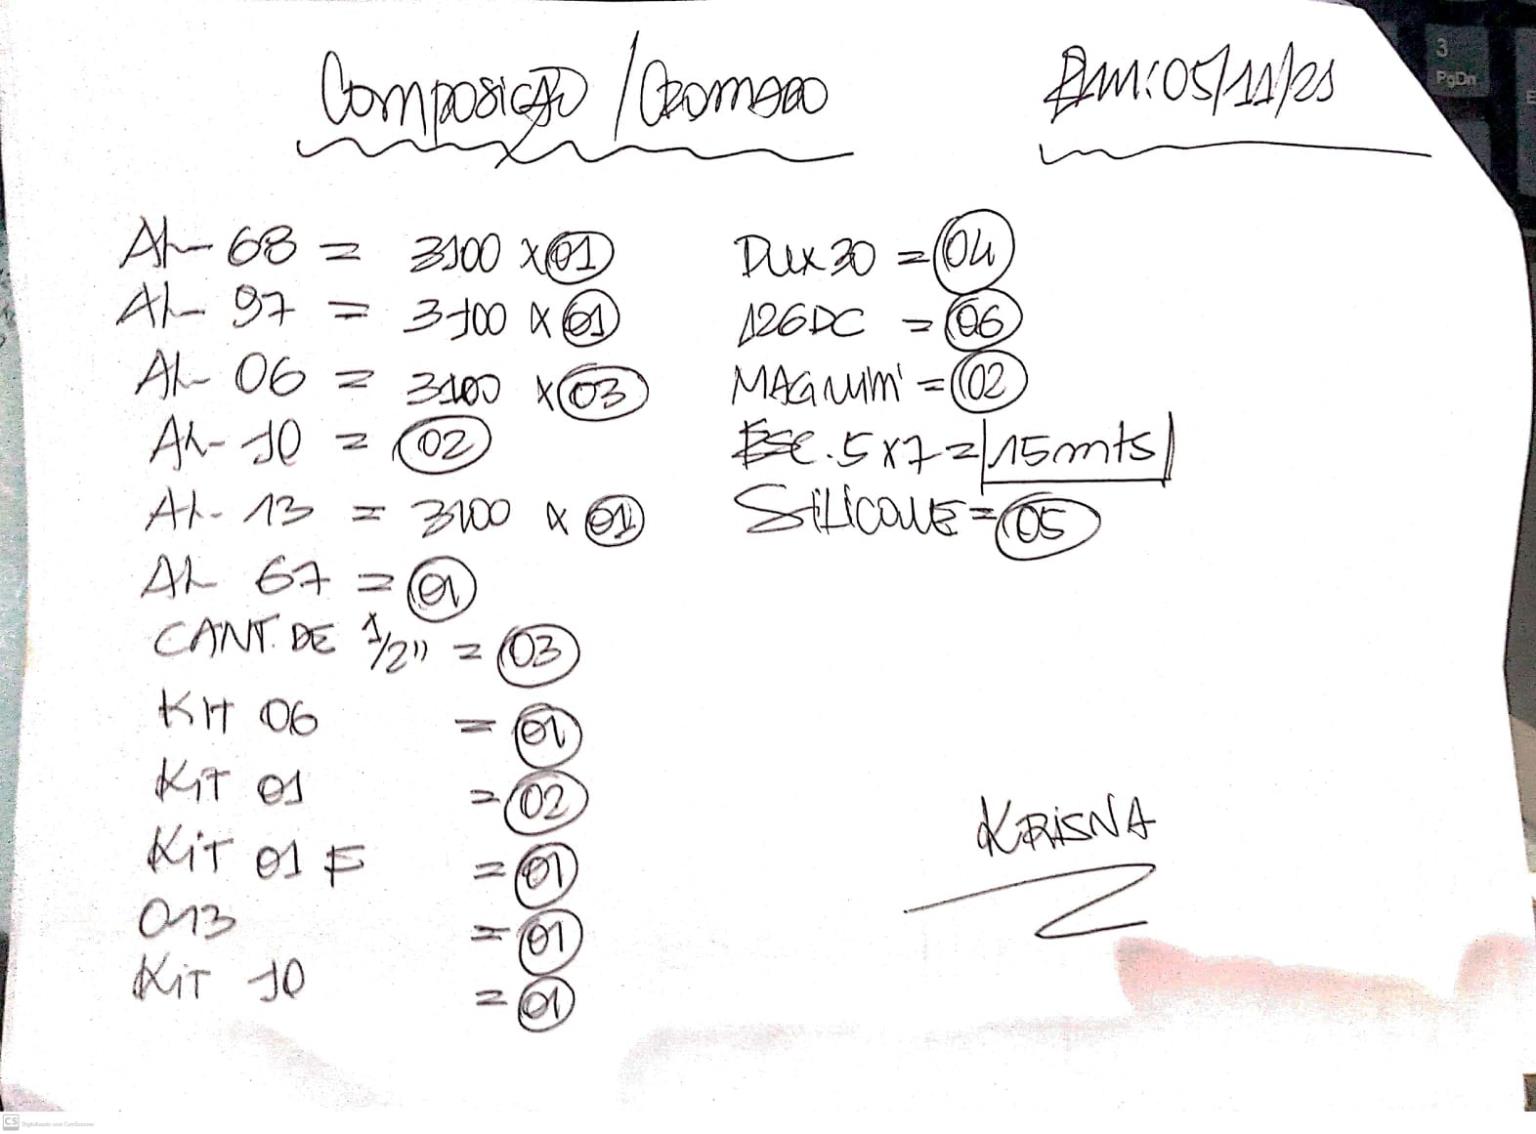 Composição / Cromado
Em: 05/11/21
AL- 68 = 3100 x 01
AL- 97 = 3100 x 01
AL- 06 = 3100 x 03
AL- 10 = 02
AL- 13 = 3100 x 01
AL 67 = 01
CANT. DE 1/2" = 03
KIT 06 = 01
KiT 01 = 02
KiT 01 F = 01
013 = 01
KiT 10 = 01
Dux 30 = 04
126DC = 06
MAGNUM = 02
Esc. 5x7 = 15mts
SiLiCONE = 05
KRiSNA
3
PgDn
CS Digitalizado com CamScanner